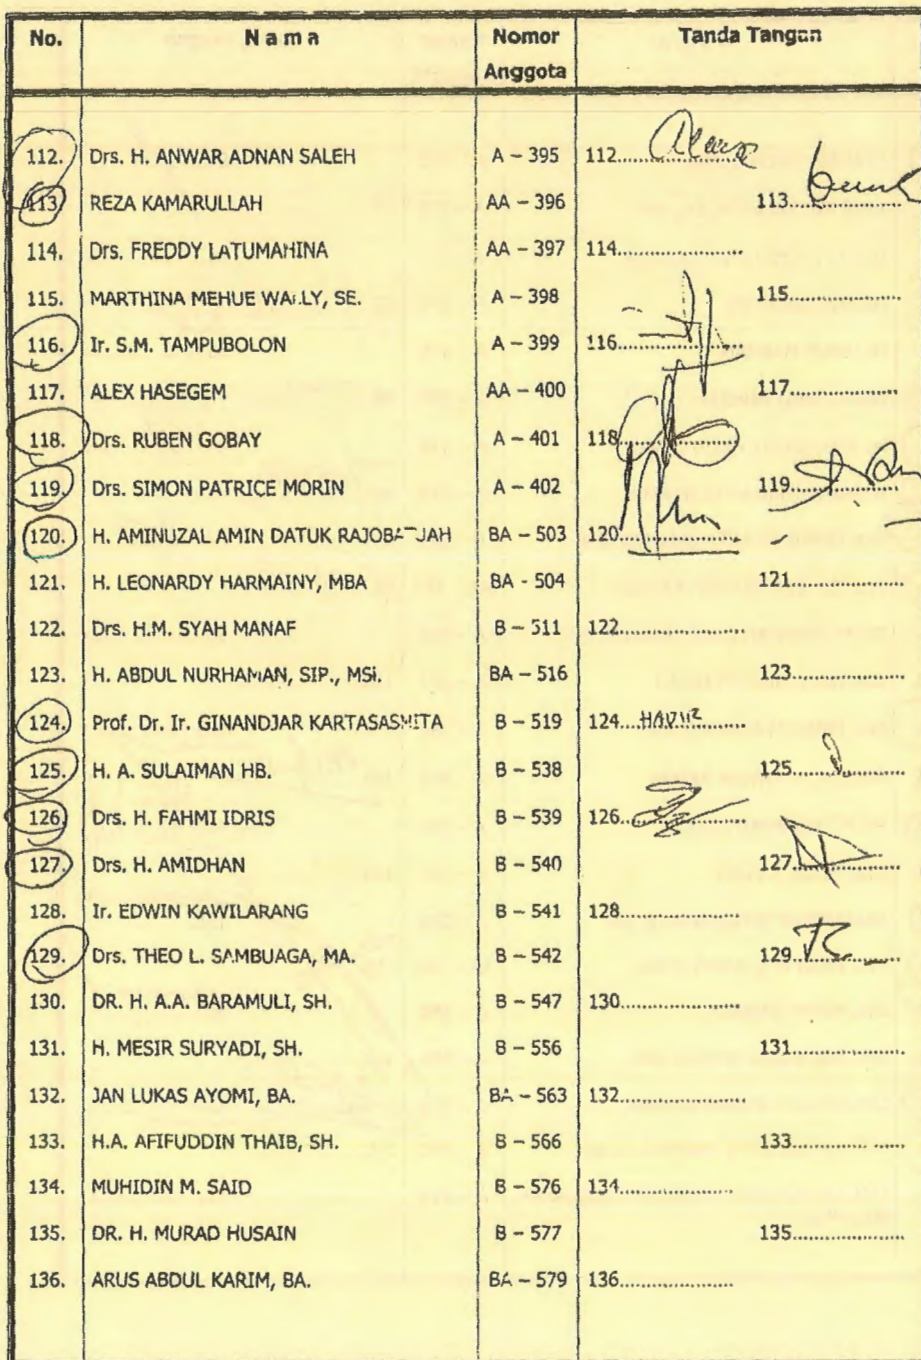 No. Nama Nomor Anggota Tanda Tangan
112. Drs. H. ANWAR ADNAN SALEH A – 395 112.
113. REZA KAMARULLAH AA – 396 113.
114. Drs. FREDDY LATUMAHINA AA – 397 114.
115. MARTHINA MEHUE WALLY, SE. A – 398 115.
116. Ir. S.M. TAMPUBOLON A – 399 116.
117. ALEX HASEGEM AA – 400 117.
118. Drs. RUBEN GOBAY A – 401 118.
119. Drs. SIMON PATRICE MORIN A – 402 119.
120. H. AMINUZAL AMIN DATUK BA – 503 120.
121. H. LEONARDY HARMAINY, MBA BA - 504 121.
122. Drs. H.M. SYAH MANAF B – 511 122.
123. H. ABDUL NURHAMAN, SIP., MSi. BA – 516 123.
124. Prof. Dr. Ir. GINANDJAR KARTASASMITA B – 519 124.
125. H. A. SULAIMAN HB. B – 538 125.
126. Drs. H. FAHMI IDRIS B – 539 126.
127. Drs. H. AMIDHAN B – 540 127.
128. Ir. EDWIN KAWILARANG B – 541 128.
129. Drs. THEO L. SAMBUAGA, MA. B – 542 129.
130. DR. H. A.A. BARAMULI, SH. B – 547 130.
131. H. MESIR SURYADI, SH. B – 556 131.
132. JAN LUKAS AYOMI, BA. BA – 563 132.
133. H.A. AFIFUDDIN THAIB, SH. B – 566 133.
134. MUHIDIN M. SAID B – 576 134.
135. DR. H. MURAD HUSAIN B – 577 135.
136. ARUS ABDUL KARIM, BA. BA – 579 136.